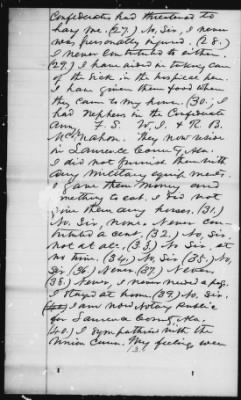 Confederates had threatened to
hang me. (27.) No, Sir, I never
was personally injured. (28.)
I never contributed to either.
(29.) I have aided in taking care
of the sick in the hospital here.
I have given them food when
they came to my house. (30.) I
had nephews in the Confederate
Army. F. S. W. J. & R. B.
McMahon. They now reside
in Lawrence County, Ala.
I did not furnish them with
any military equipments.
I gave them money and
something to eat. I did not
give them any horses. (31.)
No, Sir, none. Never con-
tributed a cent. (32.) No, Sir,
not at all. (33.) No Sir, at
no time. (34.) No, Sir (35.) No,
Sir (36.) Never (37.) Never
(38.) Never, I never used a pass.
I stayed at home. (39.) No, Sir.
I am now Notary Public
for Lawrence County, Ala.
(40.) I sympathized with the
Union Cause. My feelings were